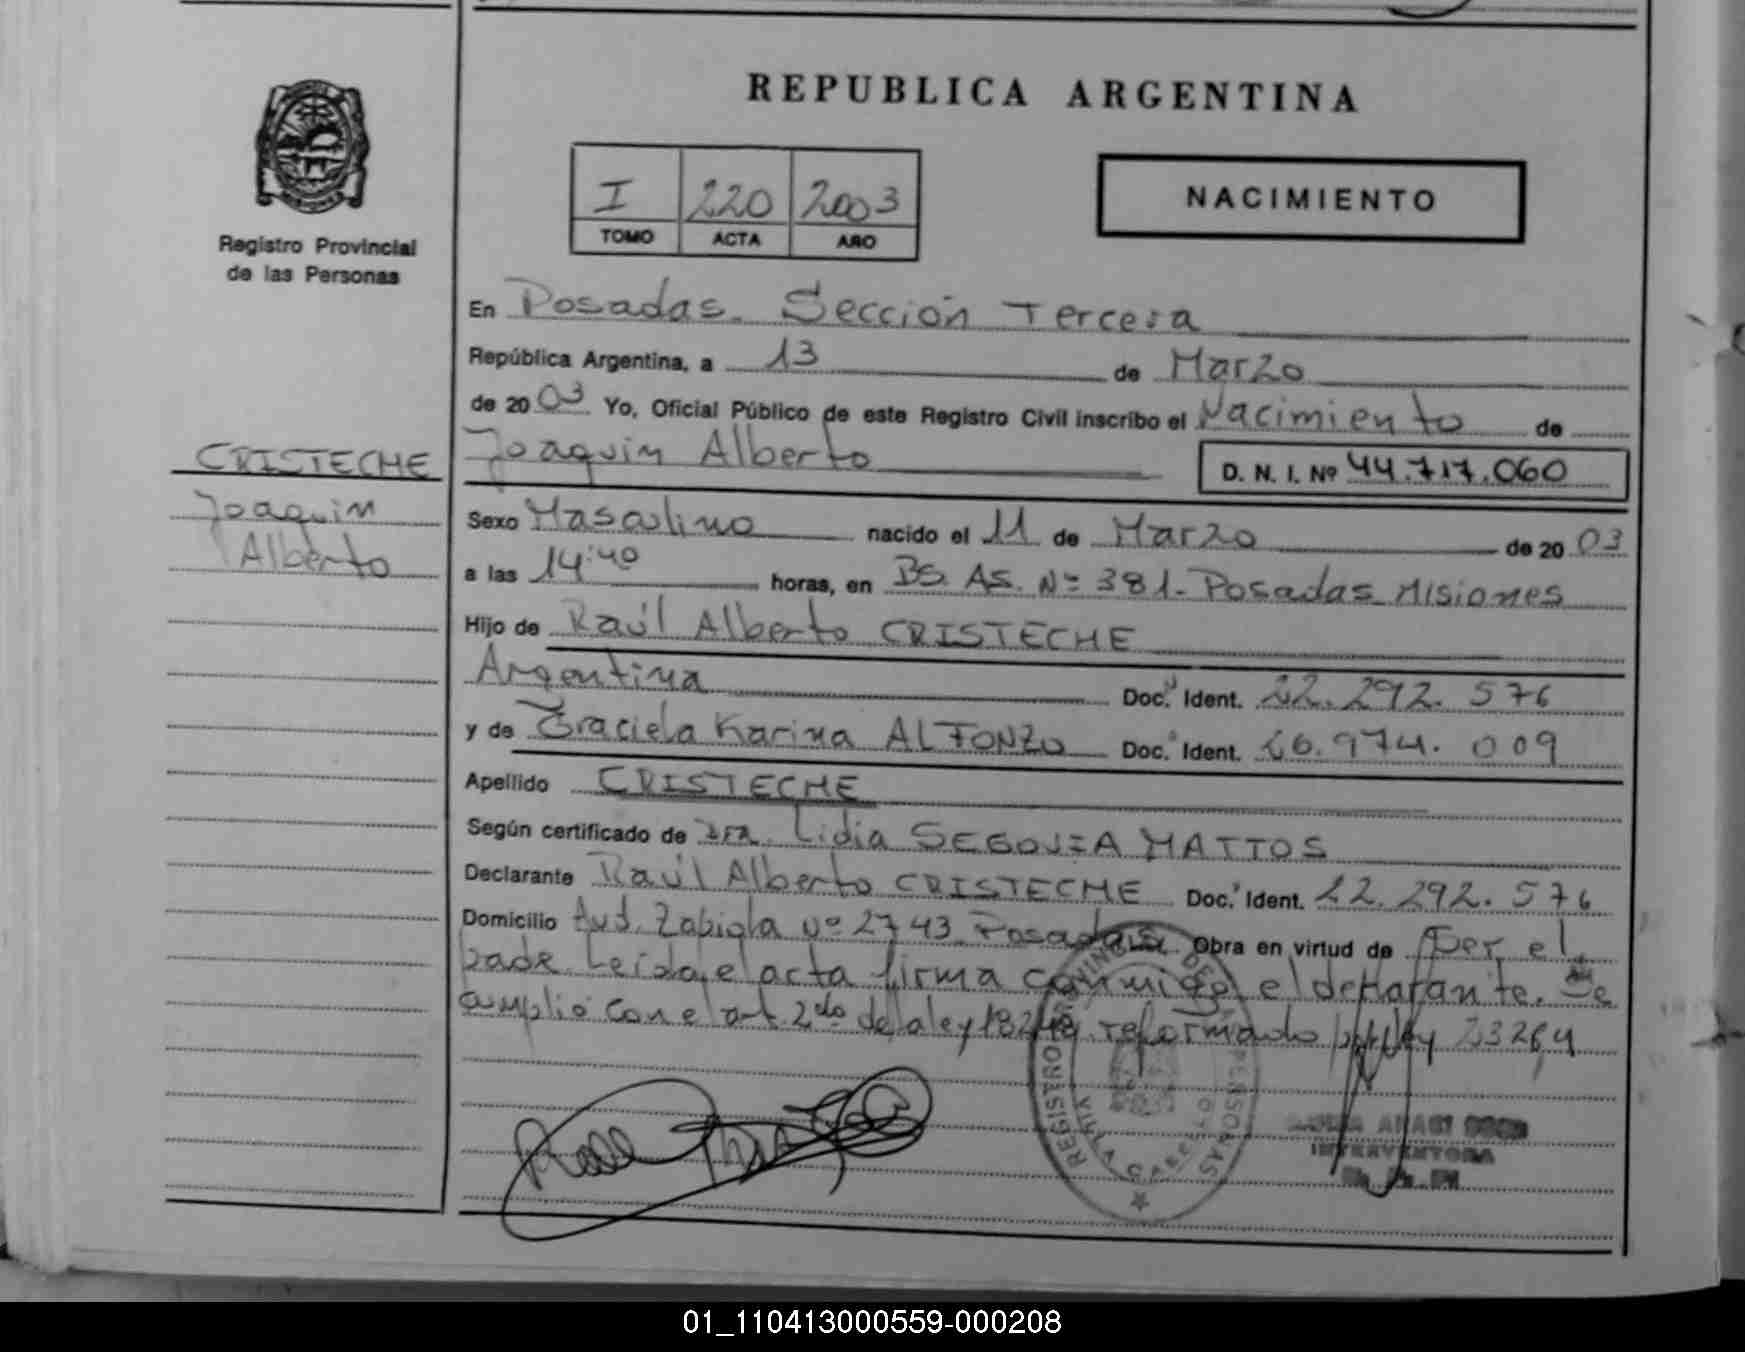 REPUBLICA ARGENTINA
I 220 2003
TOMO ACTA AÑO
NACIMIENTO
Registro Provincial
de las Personas
En Posadas. Sección Tercera
República Argentina, a 13 de Marzo
de 2003 Yo, Oficial Público de este Registro Civil inscribo el Nacimiento de
Joaquin Alberto D. N. I. Nº 44.717.060
CRISTECHE
Joaquin
Alberto
Sexo Masculino nacido el 11 de Marzo de 2003
a las 14:40 horas, en BS. AS. Nº 381. Posadas Misiones
Hijo de Raúl Alberto CRISTECHE
Argentina Doc. Ident. 22.292.576
y de Graciela Karina ALFONZO Doc. Ident. 26.974.009
Apellido CRISTECHE
Según certificado de DRA. Lidia SEGOVIA MATTOS
Declarante Raúl Alberto CRISTECHE Doc. Ident. 22.292.576
Domicilio Avd. Zabiola Nº 2743 Posadas. Obra en virtud de ser el
padre. Leida el acta firma conmigo el declarante. Se
cumplió con el art. 2do de la ley 18248 reformado por ley 23264
REGISTRO PROVINCIAL DE LAS PERSONAS
INTERVENTORA
01_110413000559-000208